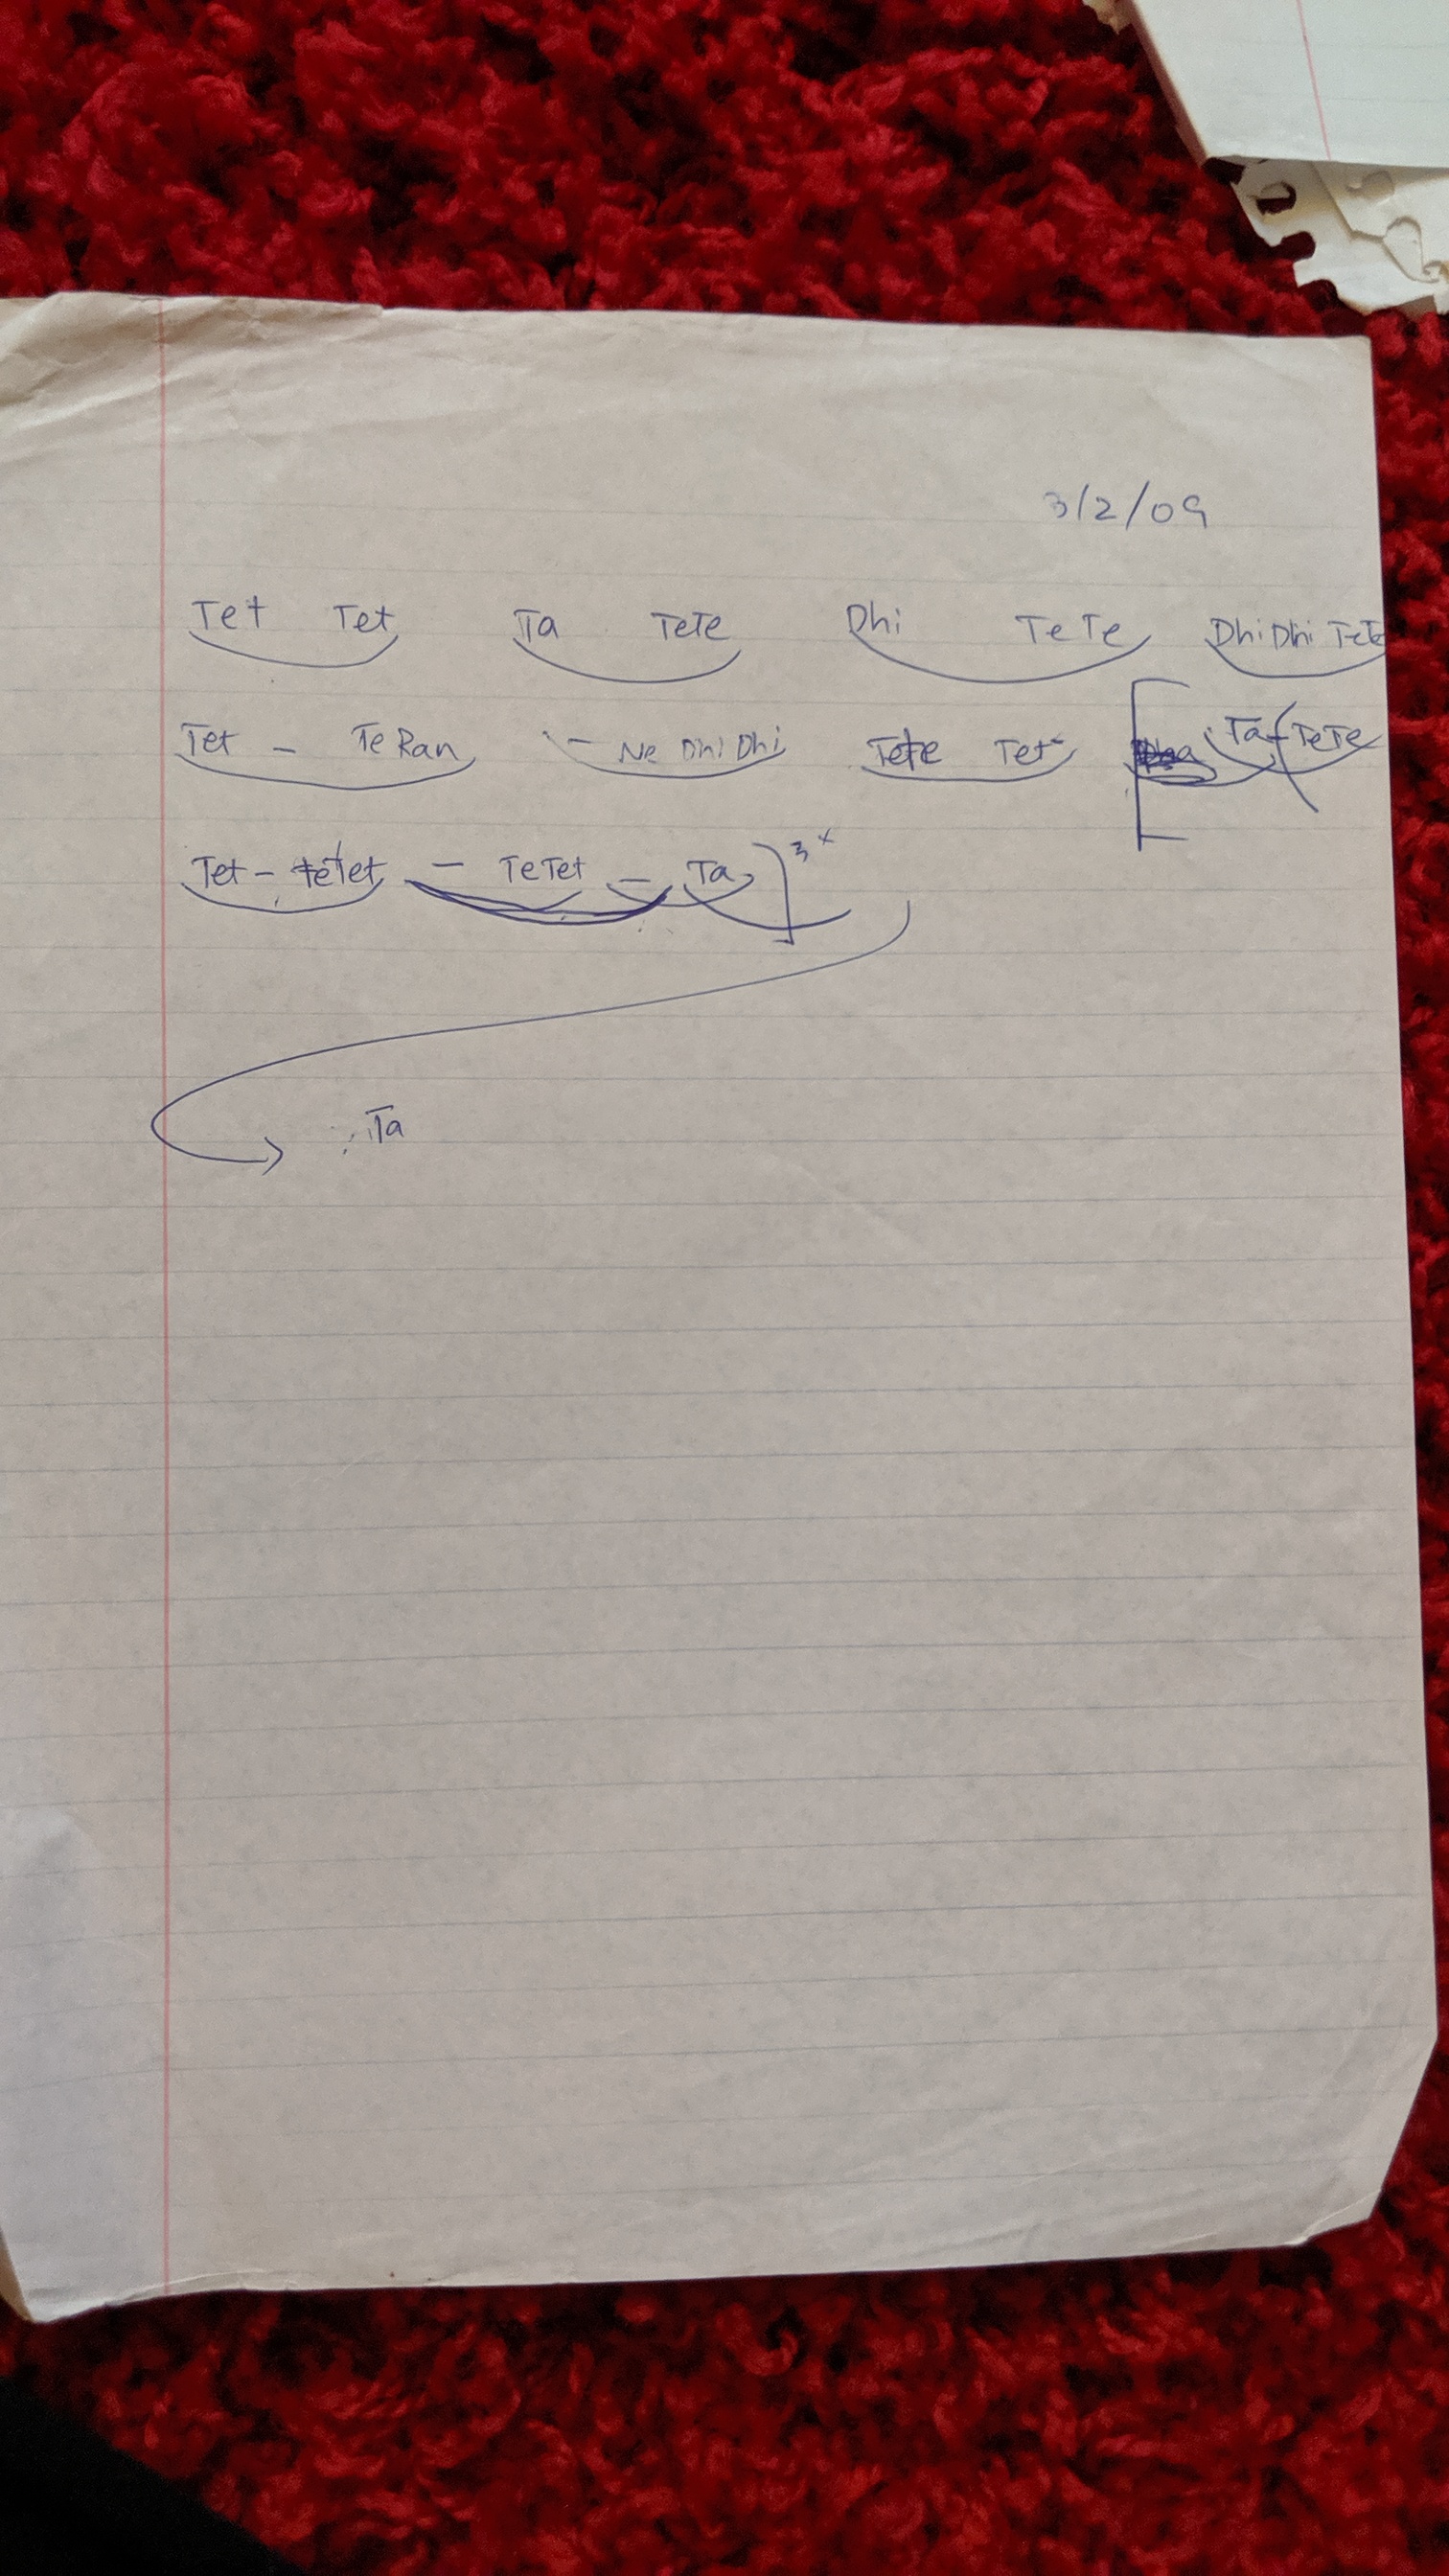 3/2/09
Tet Tet Ta TeTe Dhi TeTe DhiDhi TeTe
Tet - TeRan - Ne DhiDhi TeTe Tet [ Ta - (TeTe
Tet - teTet - TeTet - Ta ] 3x
Ta